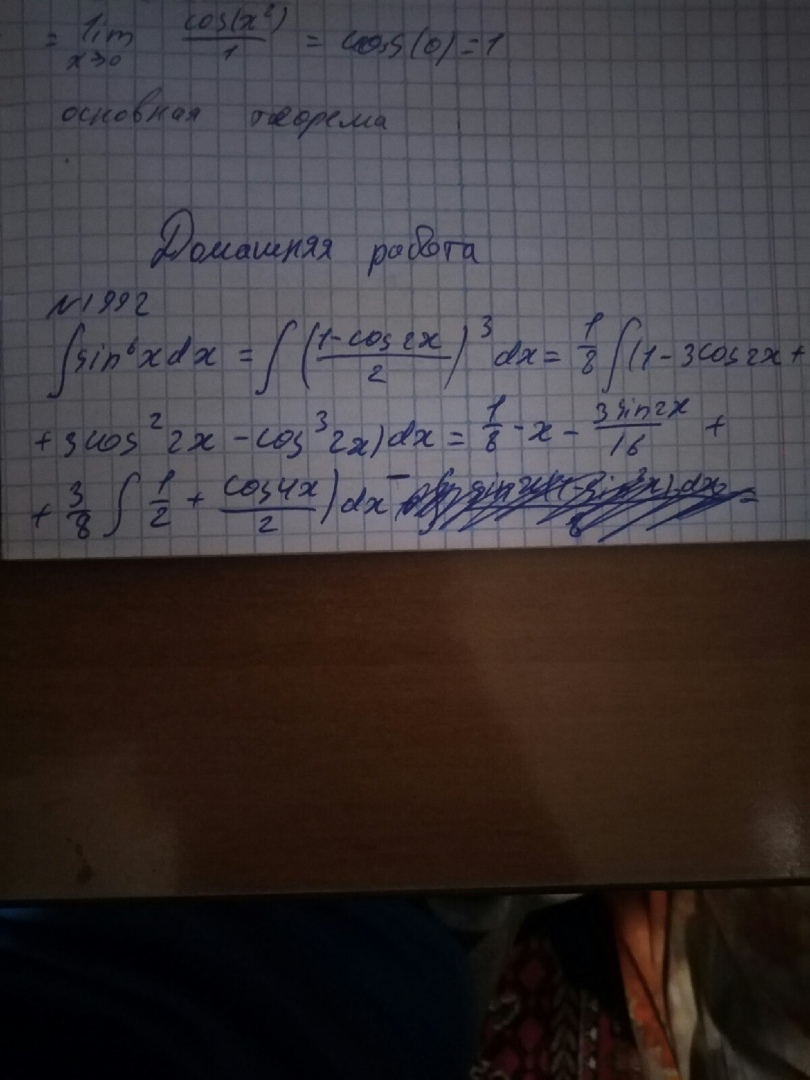 = lim x→0 cos(x²)/1 = cos(0) = 1
основная теорема
Домашняя работа
№1992
∫sin⁶xdx = ∫((1-cos2x)/2)³dx = 1/8 ∫(1-3cos2x+
+3cos²2x-cos³2x)dx = 1/8·x - 3sin2x/16 +
+3/8 ∫1/2 + cos4x/2)dx - =